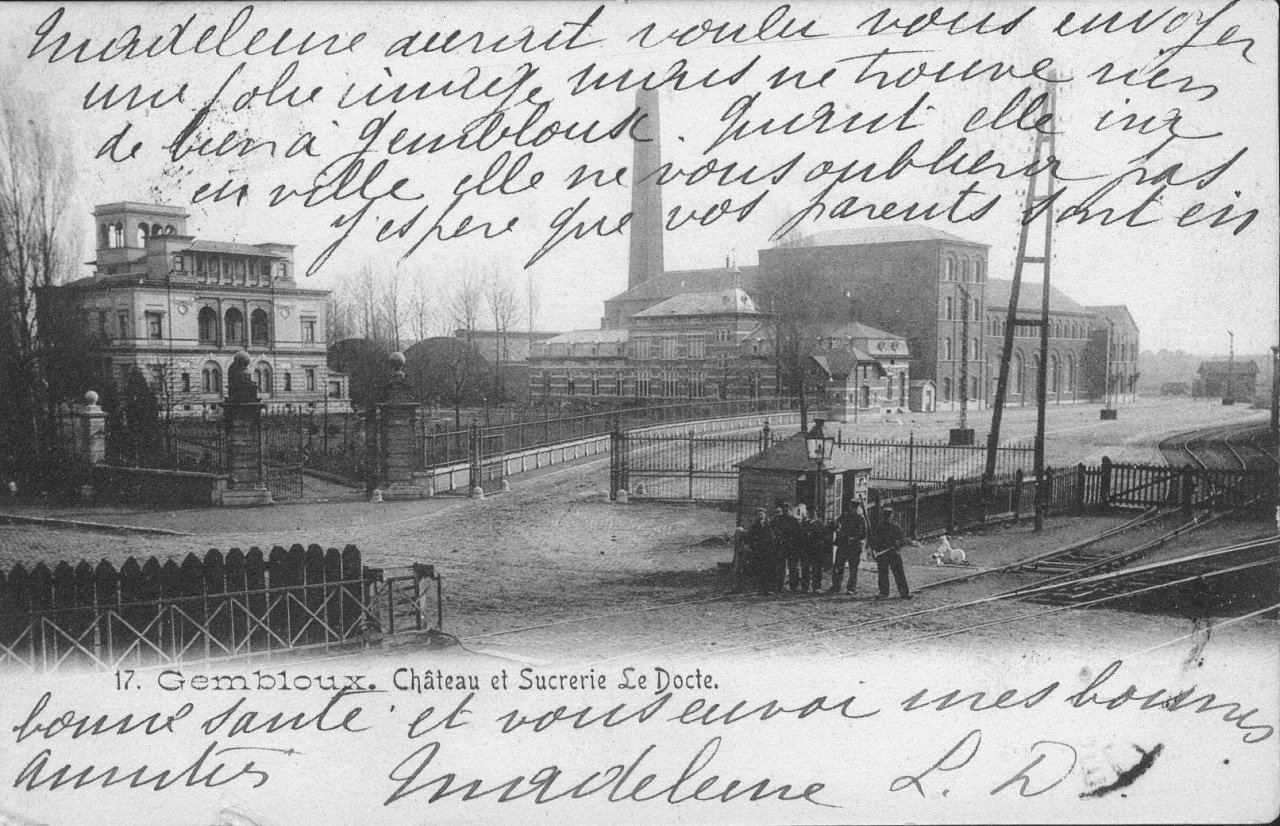 Madeleine aurait voulu vous envoyer
une jolie image mais ne trouve rien
de bien à Gembloux. Quant elle ira
en ville elle ne vous oubliera pas
J'espère que vos parents sont en
17. Gembloux. Château et Sucrerie Le Docte.
bonne santé et vous envoi mes bonnes
amitiés Madeleine L. D.